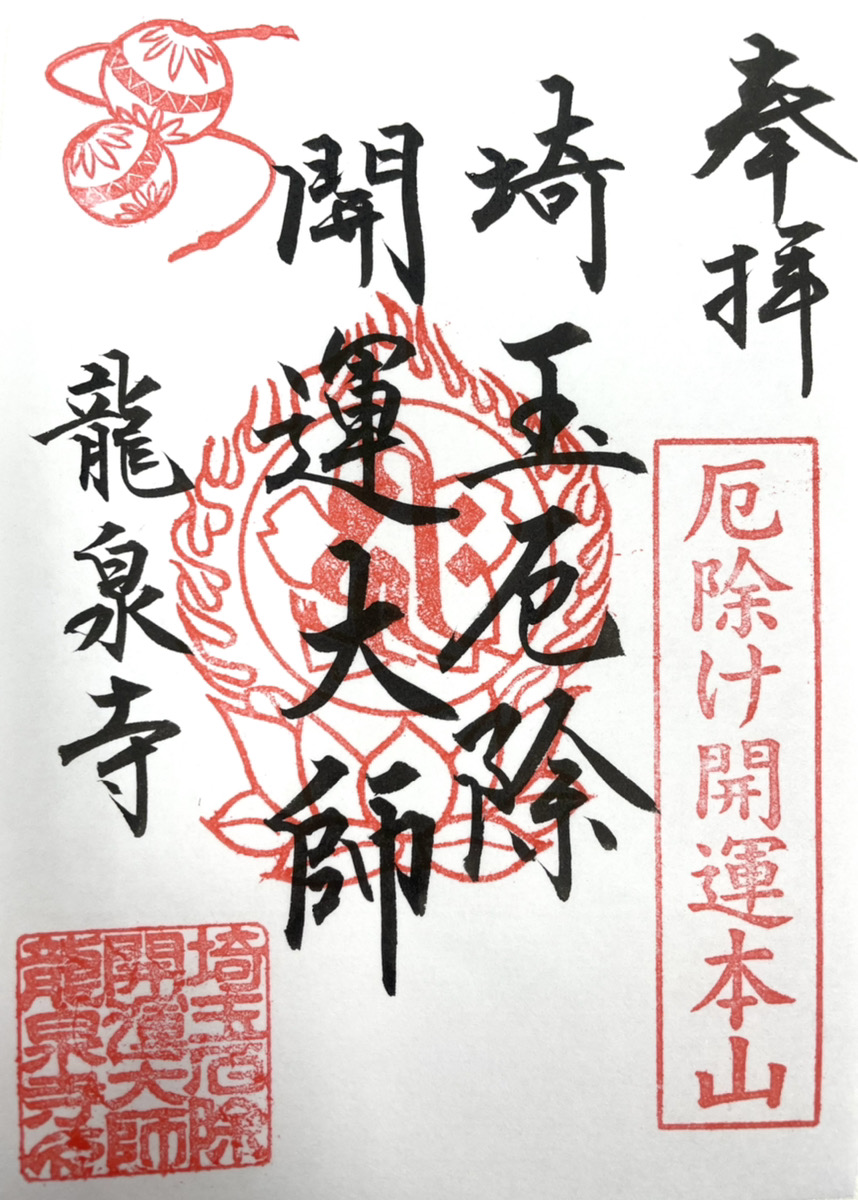 奉拝
厄除け開運本山
埼玉厄除
開運大師
龍泉寺
埼玉厄除
開運大師
龍泉寺